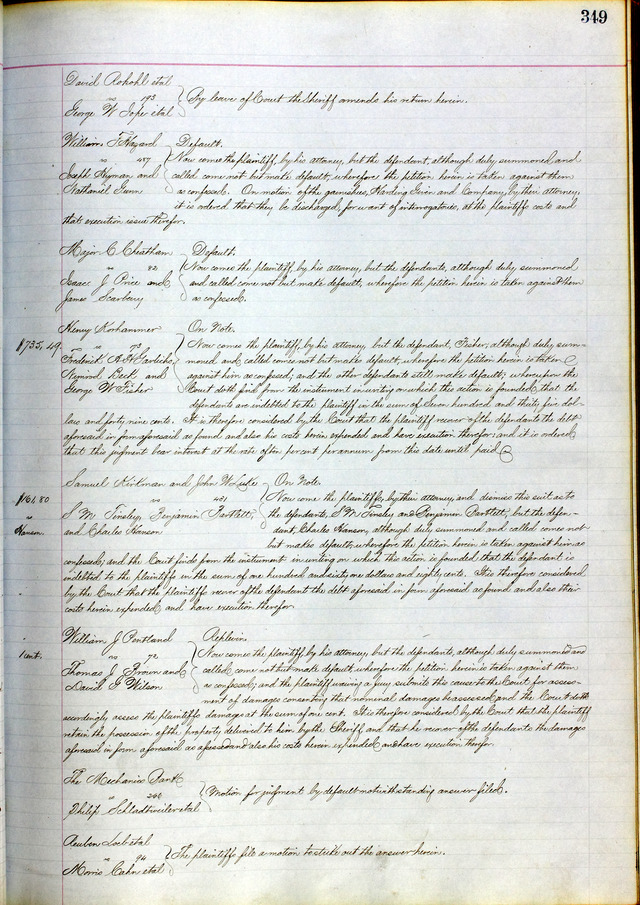 349
David Rohohl etal
vs 193 By leave of Court the Sheriff amends his return herein.
George W etal
William T Hazard Default.
vs 487 Now comes the plaintiff, by his attorney, but the defendant, although duly summoned and
Joseph Hyman and called come not but make default, wherefore the petition herein is taken against them
Nathaniel as confessed. On motion of the garnishees, Harding and Company, by their attorney,
it is ordered that they be discharged, for want of interrogatories, at the plaintiffs costs and
that execution issue therefor.
Major C Cheatham Default.
vs 82 Now comes the plaintiff, by his attorney, but the defendants, although duly summoned
Isaac J Price and and called come not but make default, wherefore the petition herein is taken against them
James as confessed.
Henry Korhammer On Note.
$735,49 vs 73 Now comes the plaintiff, by his attorney, but the defendant, Fisher, although duly sum-
Frederick moned and called comes not but make default, wherefore the petition herein is taken
Beck, and against him as confessed, and the other defendants still make default; whereupon the
George W Fisher Court doth find from the instrument in writing on which the action is founded, that the
defendants are indebted to the plaintiff in the sum of Seven hundred and thirty five dol-
lars and forty nine cents. It is therefore considered by the Court that the plaintiff recover of the defendants the debt
aforesaid in form aforesaid as found and also his costs herein expended and have execution therefor; and it is ordered
that this judgment bear interest at the rate of ten percent per annum from this date until paid
Samuel Kirkman and John W Luke On Note
$161,80 vs 481 Now come the plaintiffs, by their attorney, and dismiss this suit as to
vs S M Tinsley, Benjamin Bartlett, the defendants, S M Tinsley and Benjamin Bartlett; but the defen-
Hanson. and Charles Hanson dant, Charles Hanson, although duly summoned and called comes not
but makes default, wherefore the petition herein is taken against him as
confessed, and the Court finds from the instrument in writing on which the action is founded that the defendant is
indebted to the plaintiffs in the sum of one hundred and sixty one dollars and eighty cents. It is therefore considered
by the Court that the plaintiffs recover of the defendant the debt aforesaid in form aforesaid as found and also their
costs herein expended and have execution therefor
William J Pentland Replevin
1 cent. vs 72 Now comes the plaintiff by his attorney, but the defendants, although duly summoned and
Thomas J Brown and called come not but make default, wherefore the petition herein is taken against them
David G Wilson as confessed, and the plaintiff waiving a jury submits this cause to the Court for assess-
ment of damages consenting that nominal damages be assessed and the Court doth
accordingly assess the plaintiffs damages at the sum of one cent. It is therefore considered by the Court that the plaintiff
retain the possession of the property delivered to him by the Sheriff and that he recover of the defendants the damages
aforesaid in form aforesaid as assessed and also his costs herein expended and have execution therefor.
The Mechanics Bank
vs 246 Motion for judgment by default notwithstanding answer filed.
Philip Schladtweiler etal
Reuben Loeb etal
vs 94 The plaintiffs file a motion to strike out the answer herein.
Morris Cahn etal